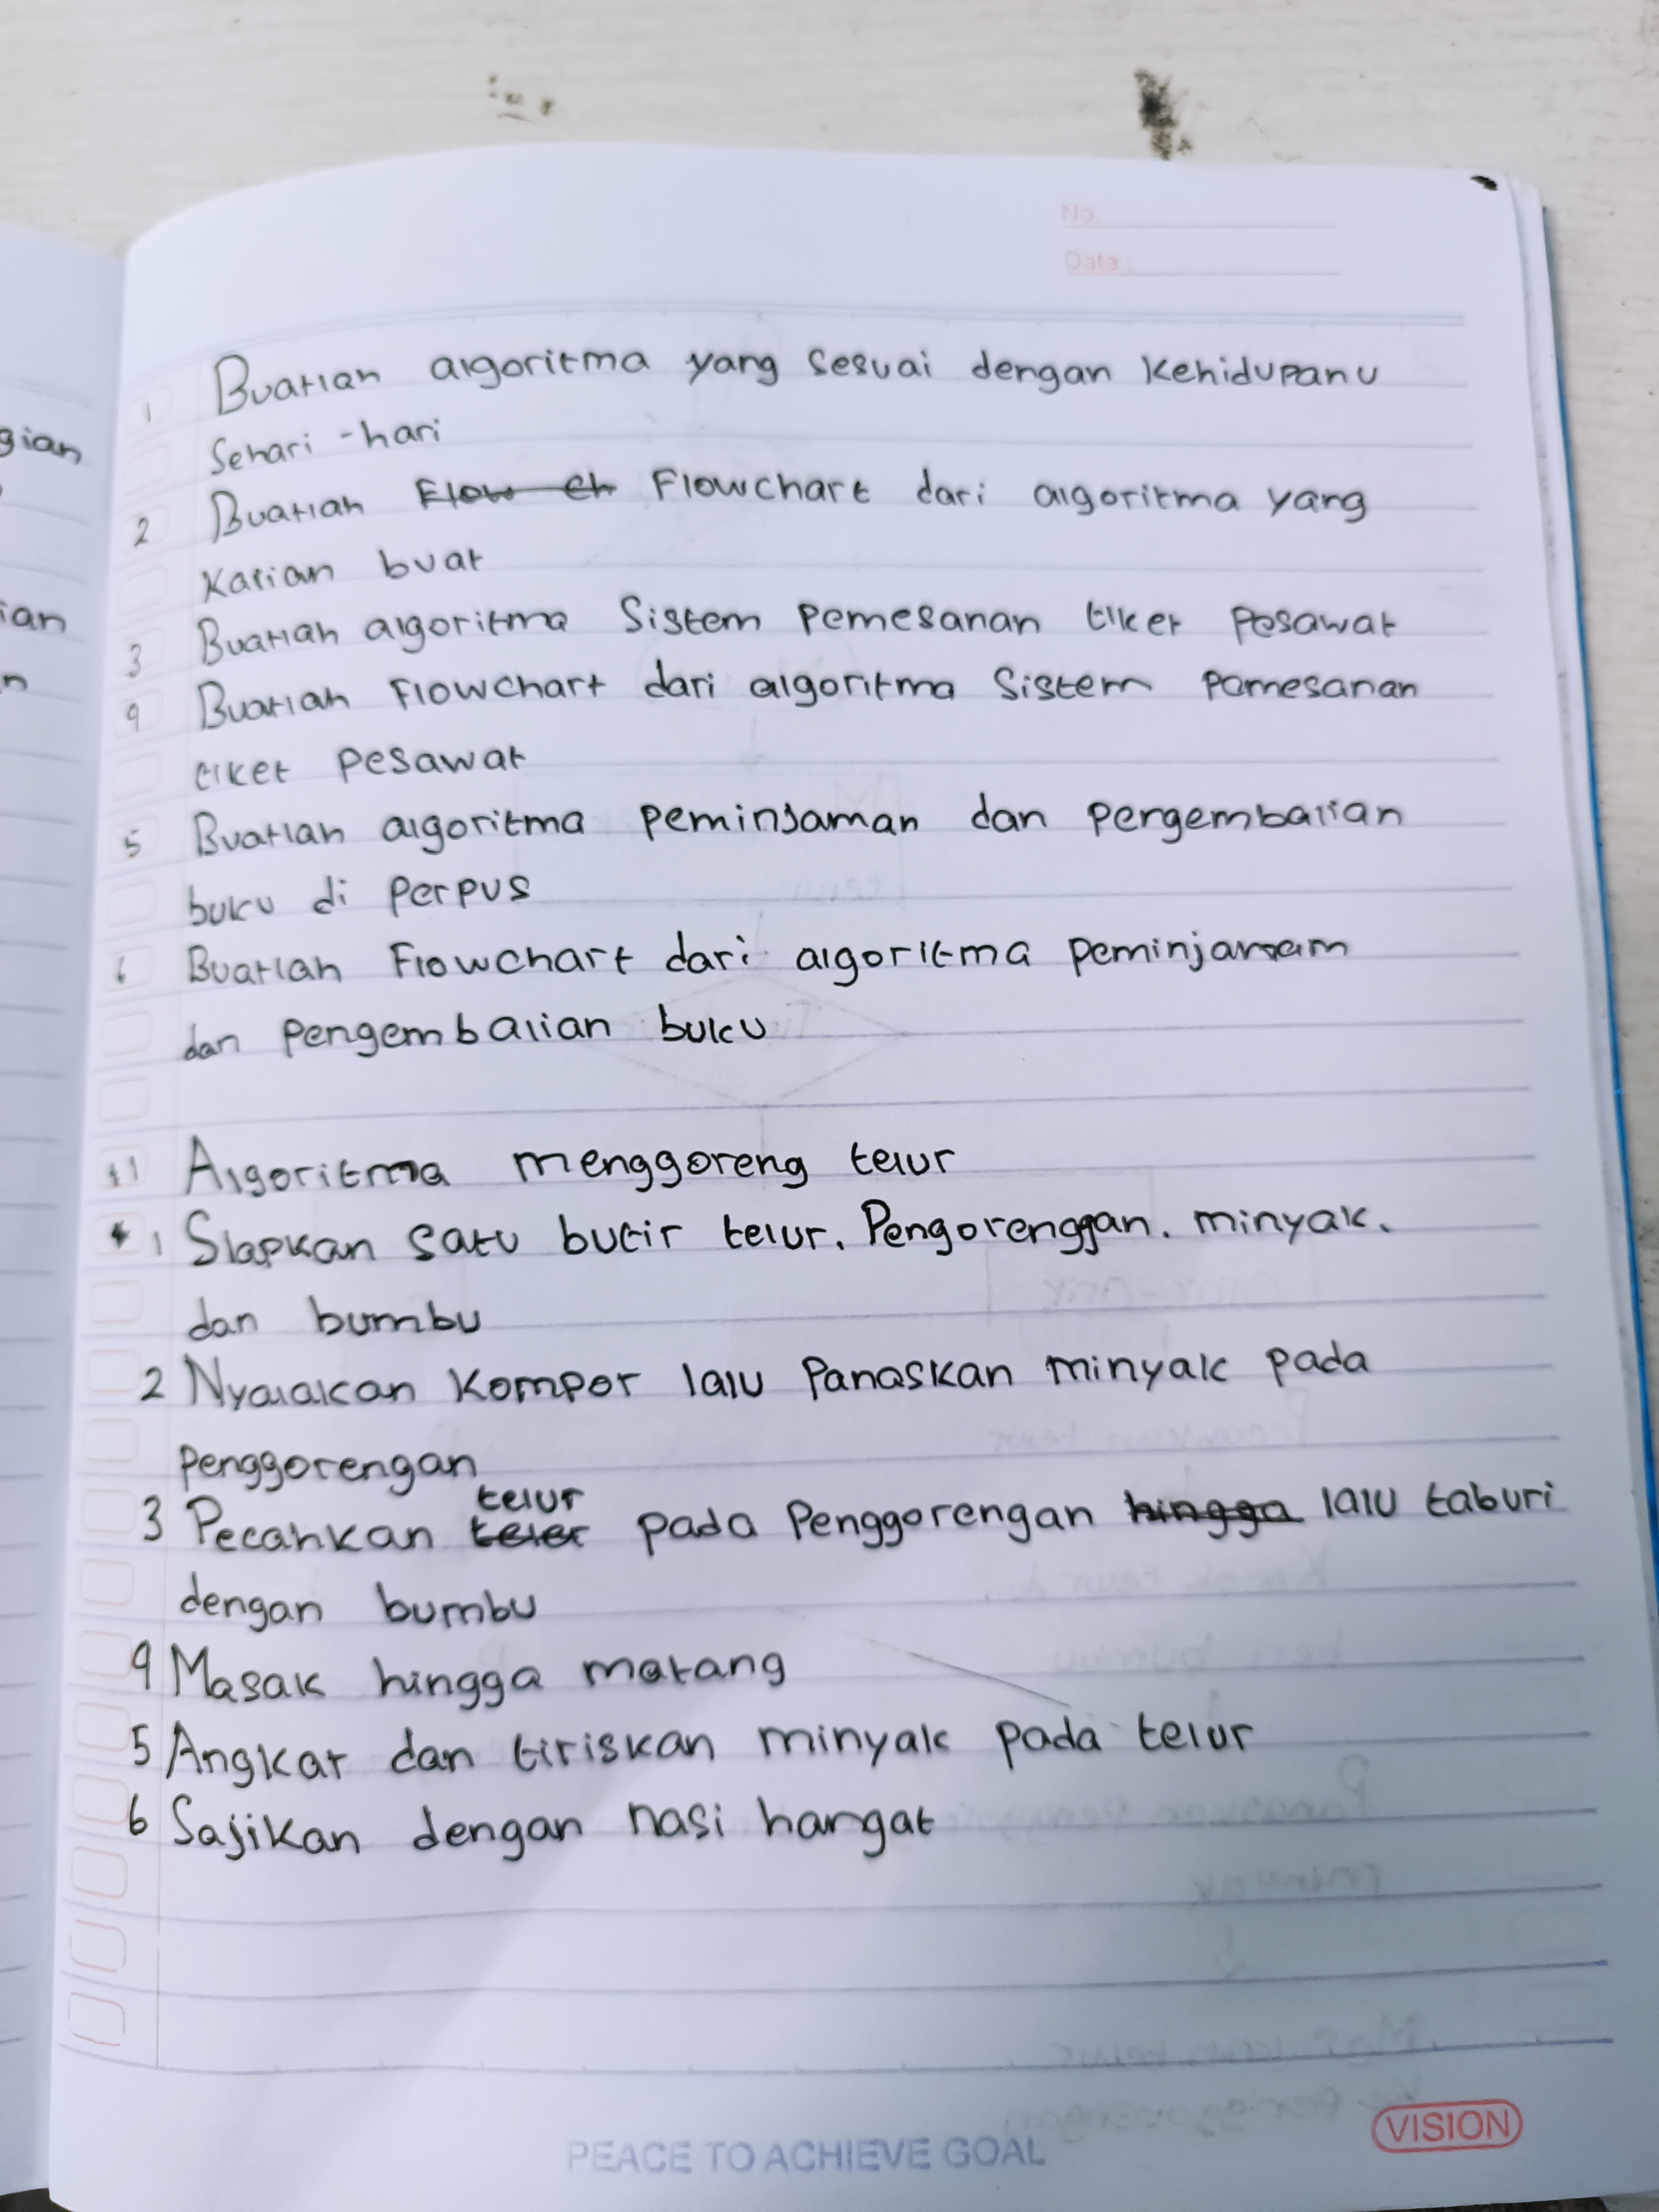 No.
Date :
gian
ian
n
1 Buatlah algoritma yang sesuai dengan kehidupanu
Sehari - hari
2 Buatlah Flow ch Flowchart dari algoritma yang
kalian buat
3 Buatlah algoritma Sistem pemesanan tiket pesawat
4 Buatlah Flowchart dari algoritma Sistem pamesanan
tiket pesawat
5 Buatlah algoritma peminjaman dan pergembalian
buku di perpus
6 Buatlah Flowchart dari algoritma peminjaman
dan pengembalian buku
11 Algoritma menggoreng telur
1 Siapkan satu butir telur, Pengorenggan, minyak,
dan bumbu
2 Nyalakan Kompor lalu Panaskan minyak pada
penggorengan
telur
3 Pecahkan teler pada Penggorengan hingga lalu taburi
dengan bumbu
4 Masak hingga matang
5 Angkat dan tiriskan minyak pada telur
6 Sajikan dengan nasi hangat
VISION
PEACE TO ACHIEVE GOAL